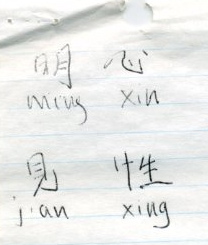 明 心
ming xin
見 性
jian xing